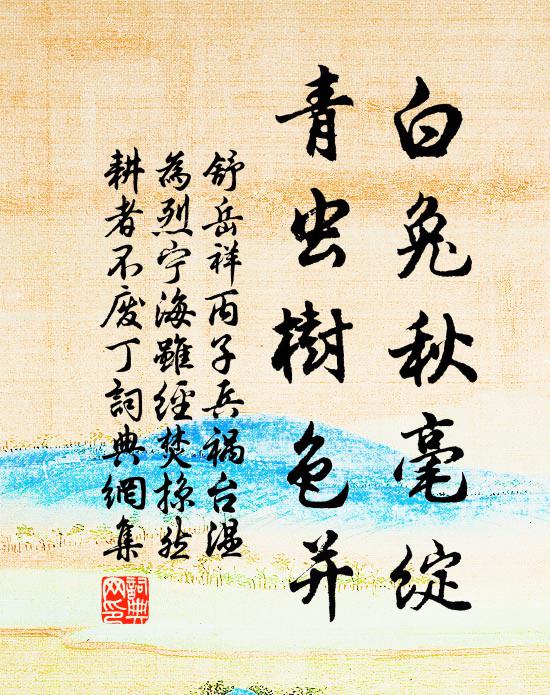 白兔秋毫綻
青虫樹色并
舒岳祥丙子兵禍台温
為烈宁海雖經焚掠然
耕者不廢丁詞典網集
詞典
网印